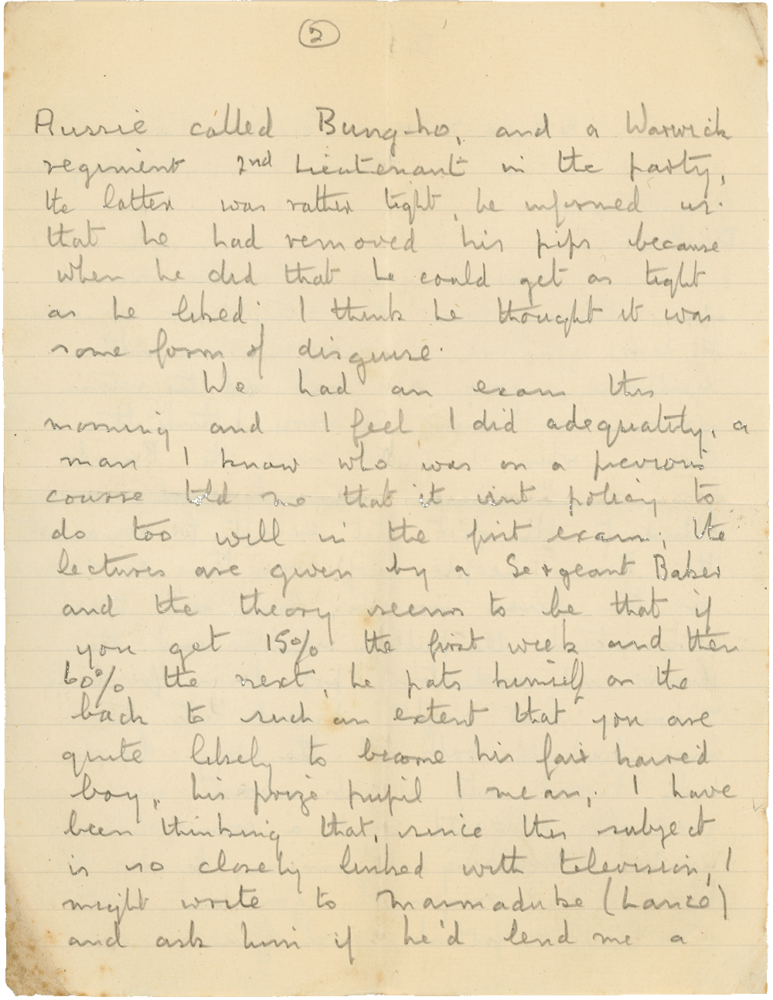 2
Aussie called Bung-ho, and a Warwick
regiment 2nd Lieutenant in the party,
the latter was rather tight, he informed us.
that he had removed his pips because
when he did that he could get as tight
as he liked. I think he thought it was
some form of disguise.
We had an exam this
morning and I feel I did adequately, a
man I know who was on a previous
course told me that it isnt policy to
do too well in the first exam; the
lectures are given by a Sergeant Baker
and the theory seems to be that if
you get 15% the first week and then
60% the next, he pats himself on the
back to such an extent that you are
quite likely to become his fair haired
boy, his prize pupil I mean,. I have
been thinking that, since this subject
is so closely linked with television, I
might write to Marmaduke (Lance)
and ask him if he'd lend me a